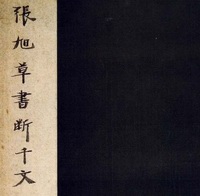 張旭草書断千文